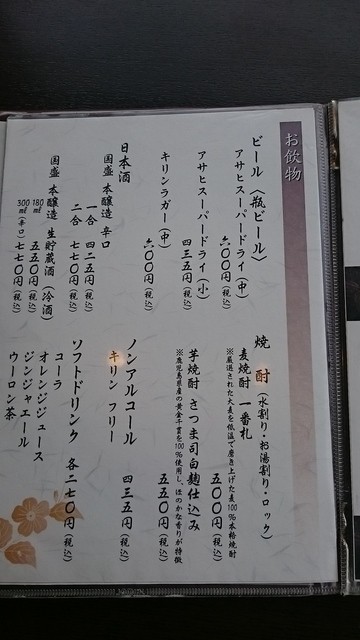 お飲物
ビール（瓶ビール）
アサヒスーパードライ（中）
六〇〇円（税込）
アサヒスーパードライ（小）
四三五円（税込）
キリンラガー（中）
六〇〇円（税込）
日本酒
国盛 本醸造 辛口
一合 四二五円（税込）
二合 七七〇円（税込）
国盛 本醸造 生貯蔵酒（冷酒）
180ml 五五〇円（税込）
300ml（辛口）七七〇円（税込）
焼酎（水割り・お湯割り・ロック）
麦焼酎 一番札
※厳選された大麦を低温で磨き上げた麦100%本格焼酎
五〇〇円（税込）
芋焼酎 さつま司白麹仕込み
※鹿児島県産の黄金千貫を100%使用し、ほのかな香りが特徴
五五〇円（税込）
ノンアルコール
キリン フリー
四三五円（税込）
ソフトドリンク 各二七〇円（税込）
コーラ
オレンジジュース
ジンジャエール
ウーロン茶